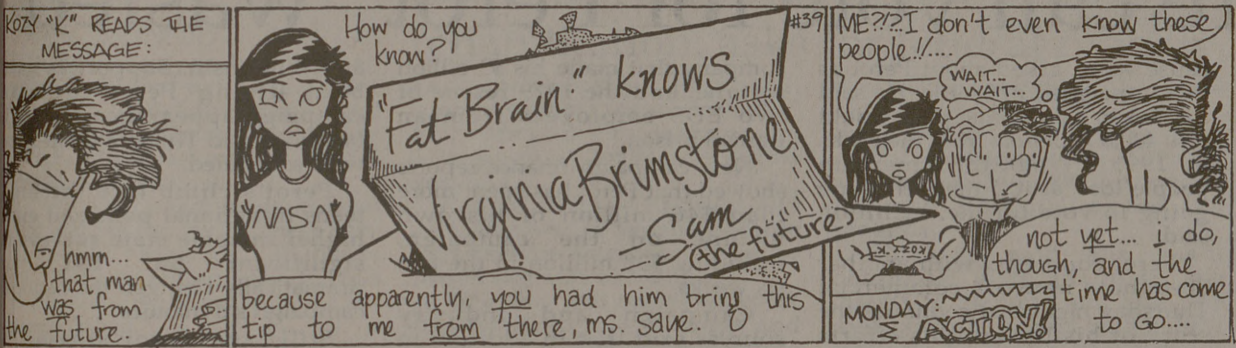 KOZY "K" READS THE
MESSAGE:
hmm...
that man
was from
the future.
How do you
know?
#39
"Fat Brain" knows
Virginia Brimstone
Sam
(the future)
NASA
because apparently, you had him bring this
tip to me from there, ms. Saye.
ME?!?.I don't even know these
people!!....
WAIT...
WAIT...
KOZY K.
not yet... i do,
though, and the
time has come
to GO....
MONDAY:
ACTION!